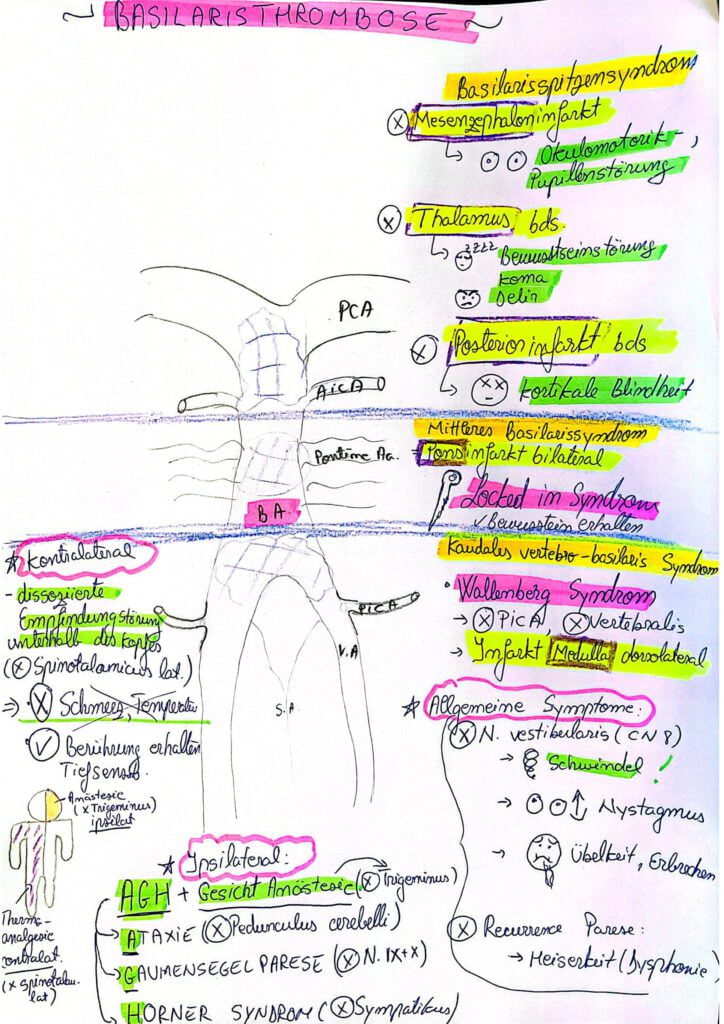 BASILARISTHROMBOSE
Basilarisspitzensyndrom
Mesenzephaloninfarkt
Okulomotorik-,
Pupillenstörung
Thalamus bds.
zzzz Bewusstseinstörung
Koma
Delir
PCA
Posteriorinfarkt bds
AiCA
Kortikale Blindheit
Mittleres Basilarissyndrom
Pontine Aa.
= Ponsinfarkt bilateral
BA
Locked in Syndrom
✓ Bewusstein erhalten
Kaudales vertebro-basilaris Syndrom
* Kontralateral
- dissoziierte
Empfindungstörung
unterhalb des Kopfes
(X Spinotalamicus lat.)
=> X Schmerz, Temperatur
✓ Berührung erhalten
Tiefsensib.
PICA
V.A
S.A
• Wallenberg Syndrom
→ X PiCA, X Vertebralis
→ Infarkt Medulla dorsolateral
* Allgemeine Symptome:
X N. vestibularis (CN 8)
→ Schwindel!
→ Nystagmus
→ Übelkeit, Erbrechen
X Recurrence Parese:
→ Heiserkeit (Dysphonie)
Anästesie
(X Trigeminus)
ipsilat
Thermo-
analgesie
contralat.
(X spinotalamu-
lat)
* Ipsilateral:
AGH + Gesicht Anästesie (X Trigeminus)
→ ATAXIE (X Pedunculus cerebelli)
→ GAUMENSEGEL PARESE (X N. IX+X)
→ HORNER SYNDROM (X Sympatikus)